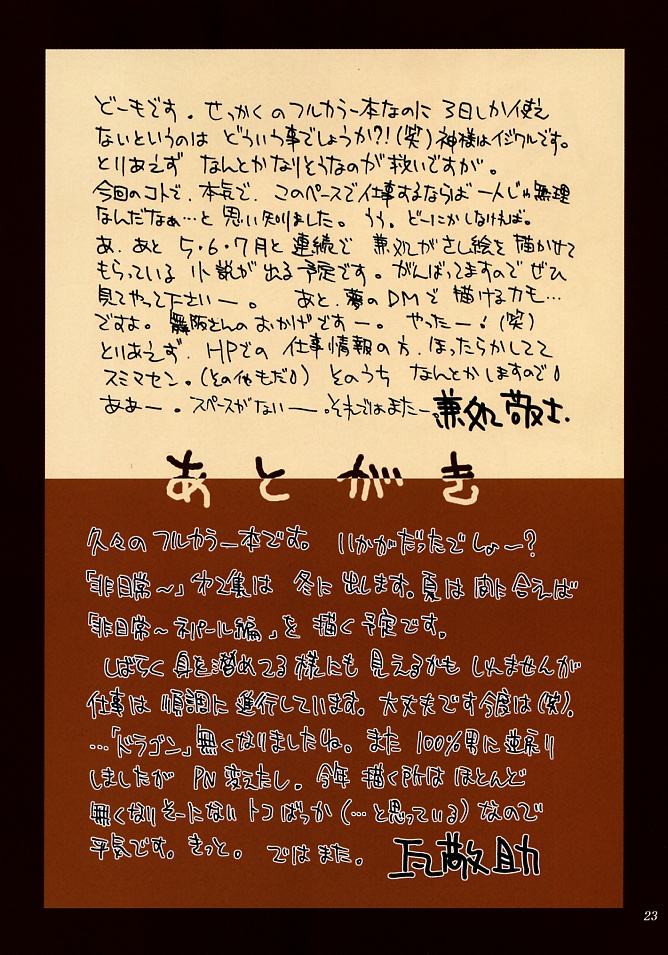 どーもです。せっかくのフルカラー本なのに 3日しか使え
ないというのは どういう事でしょうか?!(笑)神様はイジワルです。
とりあえず なんとかなりそうなのが救いですが。
今回のコトで、本気で、このペースで仕事するならば一人じゃ無理
なんだなぁ…と 思い知りました。うう。どーにかしなければ。
あ、あと 5・6・7月と連続で 兼処がさし絵を描かせて
もらっている 小説が出る予定です。がんばってますので ぜひ
見てやって下さいー。 あと、夢のDMで 描けるカモ…
ですよ。舞阪さんのおかげですー。 やったー!(笑)
とりあえず、HPでの 仕事情報の方、ほったらかしてて
スミマセン。(その他もだ〜) そのうち なんとかしますので〜
ああー。スペースがないー。それではまたー。兼処敬士.
あとがき
久々のフルカラー本です。 いかがだったでしょ〜?
「非日常〜」第2集は 冬に出します。夏は間に合えば
「非日常〜ネパール編」を 描く予定です。
しばらく身を潜めてる様にも 見えるかも しれませんが
仕事は 順調に進行しています。大丈夫です今度は(笑)。
…「ドラゴン」無くなりましたね。また 100%男に逆戻り
しましたが PN変えたし。今年 描く所は ほとんど
無くなりそーにない トコばっか(…と思っている)なので
平気です。きっと。 ではまた。 瓦敬助
23